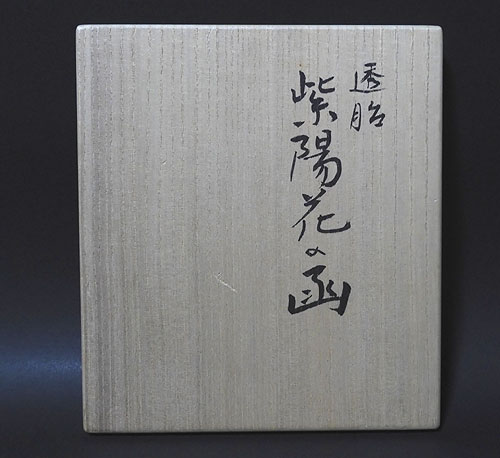 透胎
紫陽花の函